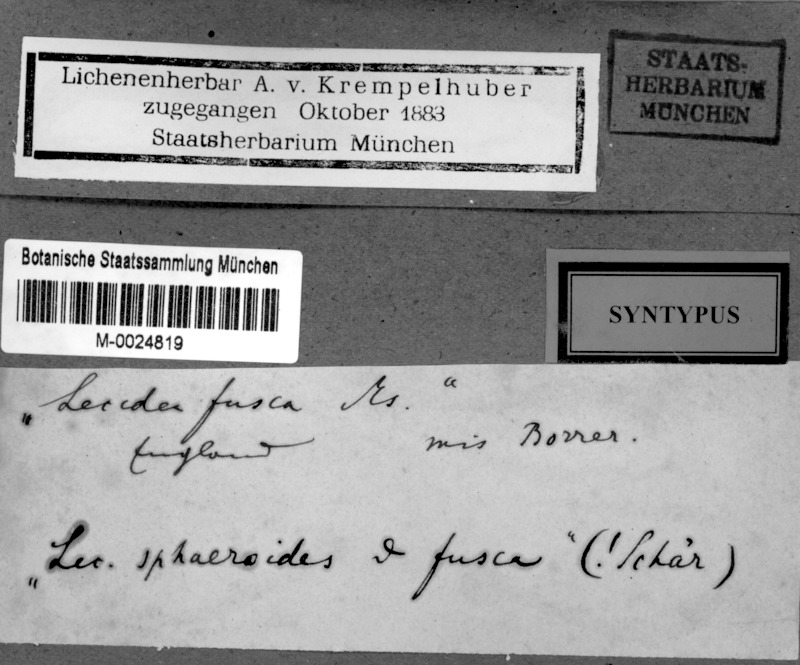 Lichenenherbar A. v. Krempelhuber
zugegangen Oktober 1883
Staatsherbarium München
STAATS-
HERBARIUM
MÜNCHEN
Botanische Staatssammlung München
M-0024819
SYNTYPUS
„Lecidea fusca “
England mis Borrer.
„Lec. sphaeroides fusca“ (! Schär)